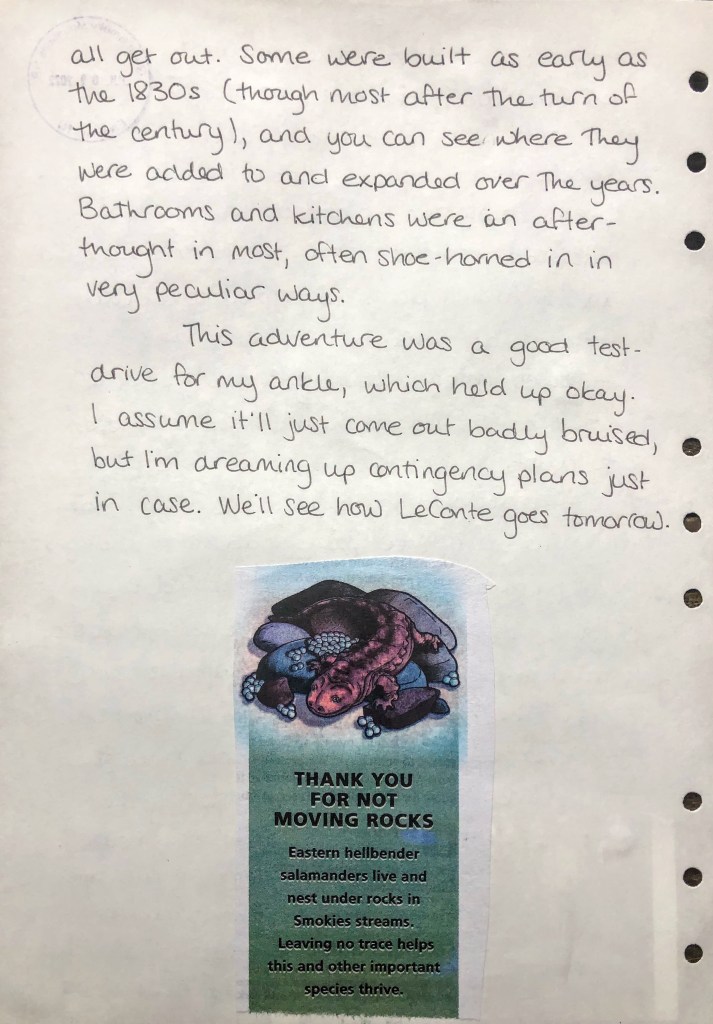 all get out. Some were built as early as
the 1830s (though most after the turn of
the century), and you can see where they
were added to and expanded over the years.
Bathrooms and kitchens were an after-
thought in most, often shoe-horned in in
very peculiar ways.
This adventure was a good test-
drive for my ankle, which held up okay.
I assume it'll just come out badly bruised,
but I'm dreaming up contingency plans just
in case. We'll see how LeConte goes tomorrow.
THANK YOU
FOR NOT
MOVING ROCKS
Eastern hellbender
salamanders live and
nest under rocks in
Smokies streams.
Leaving no trace helps
this and other important
species thrive.